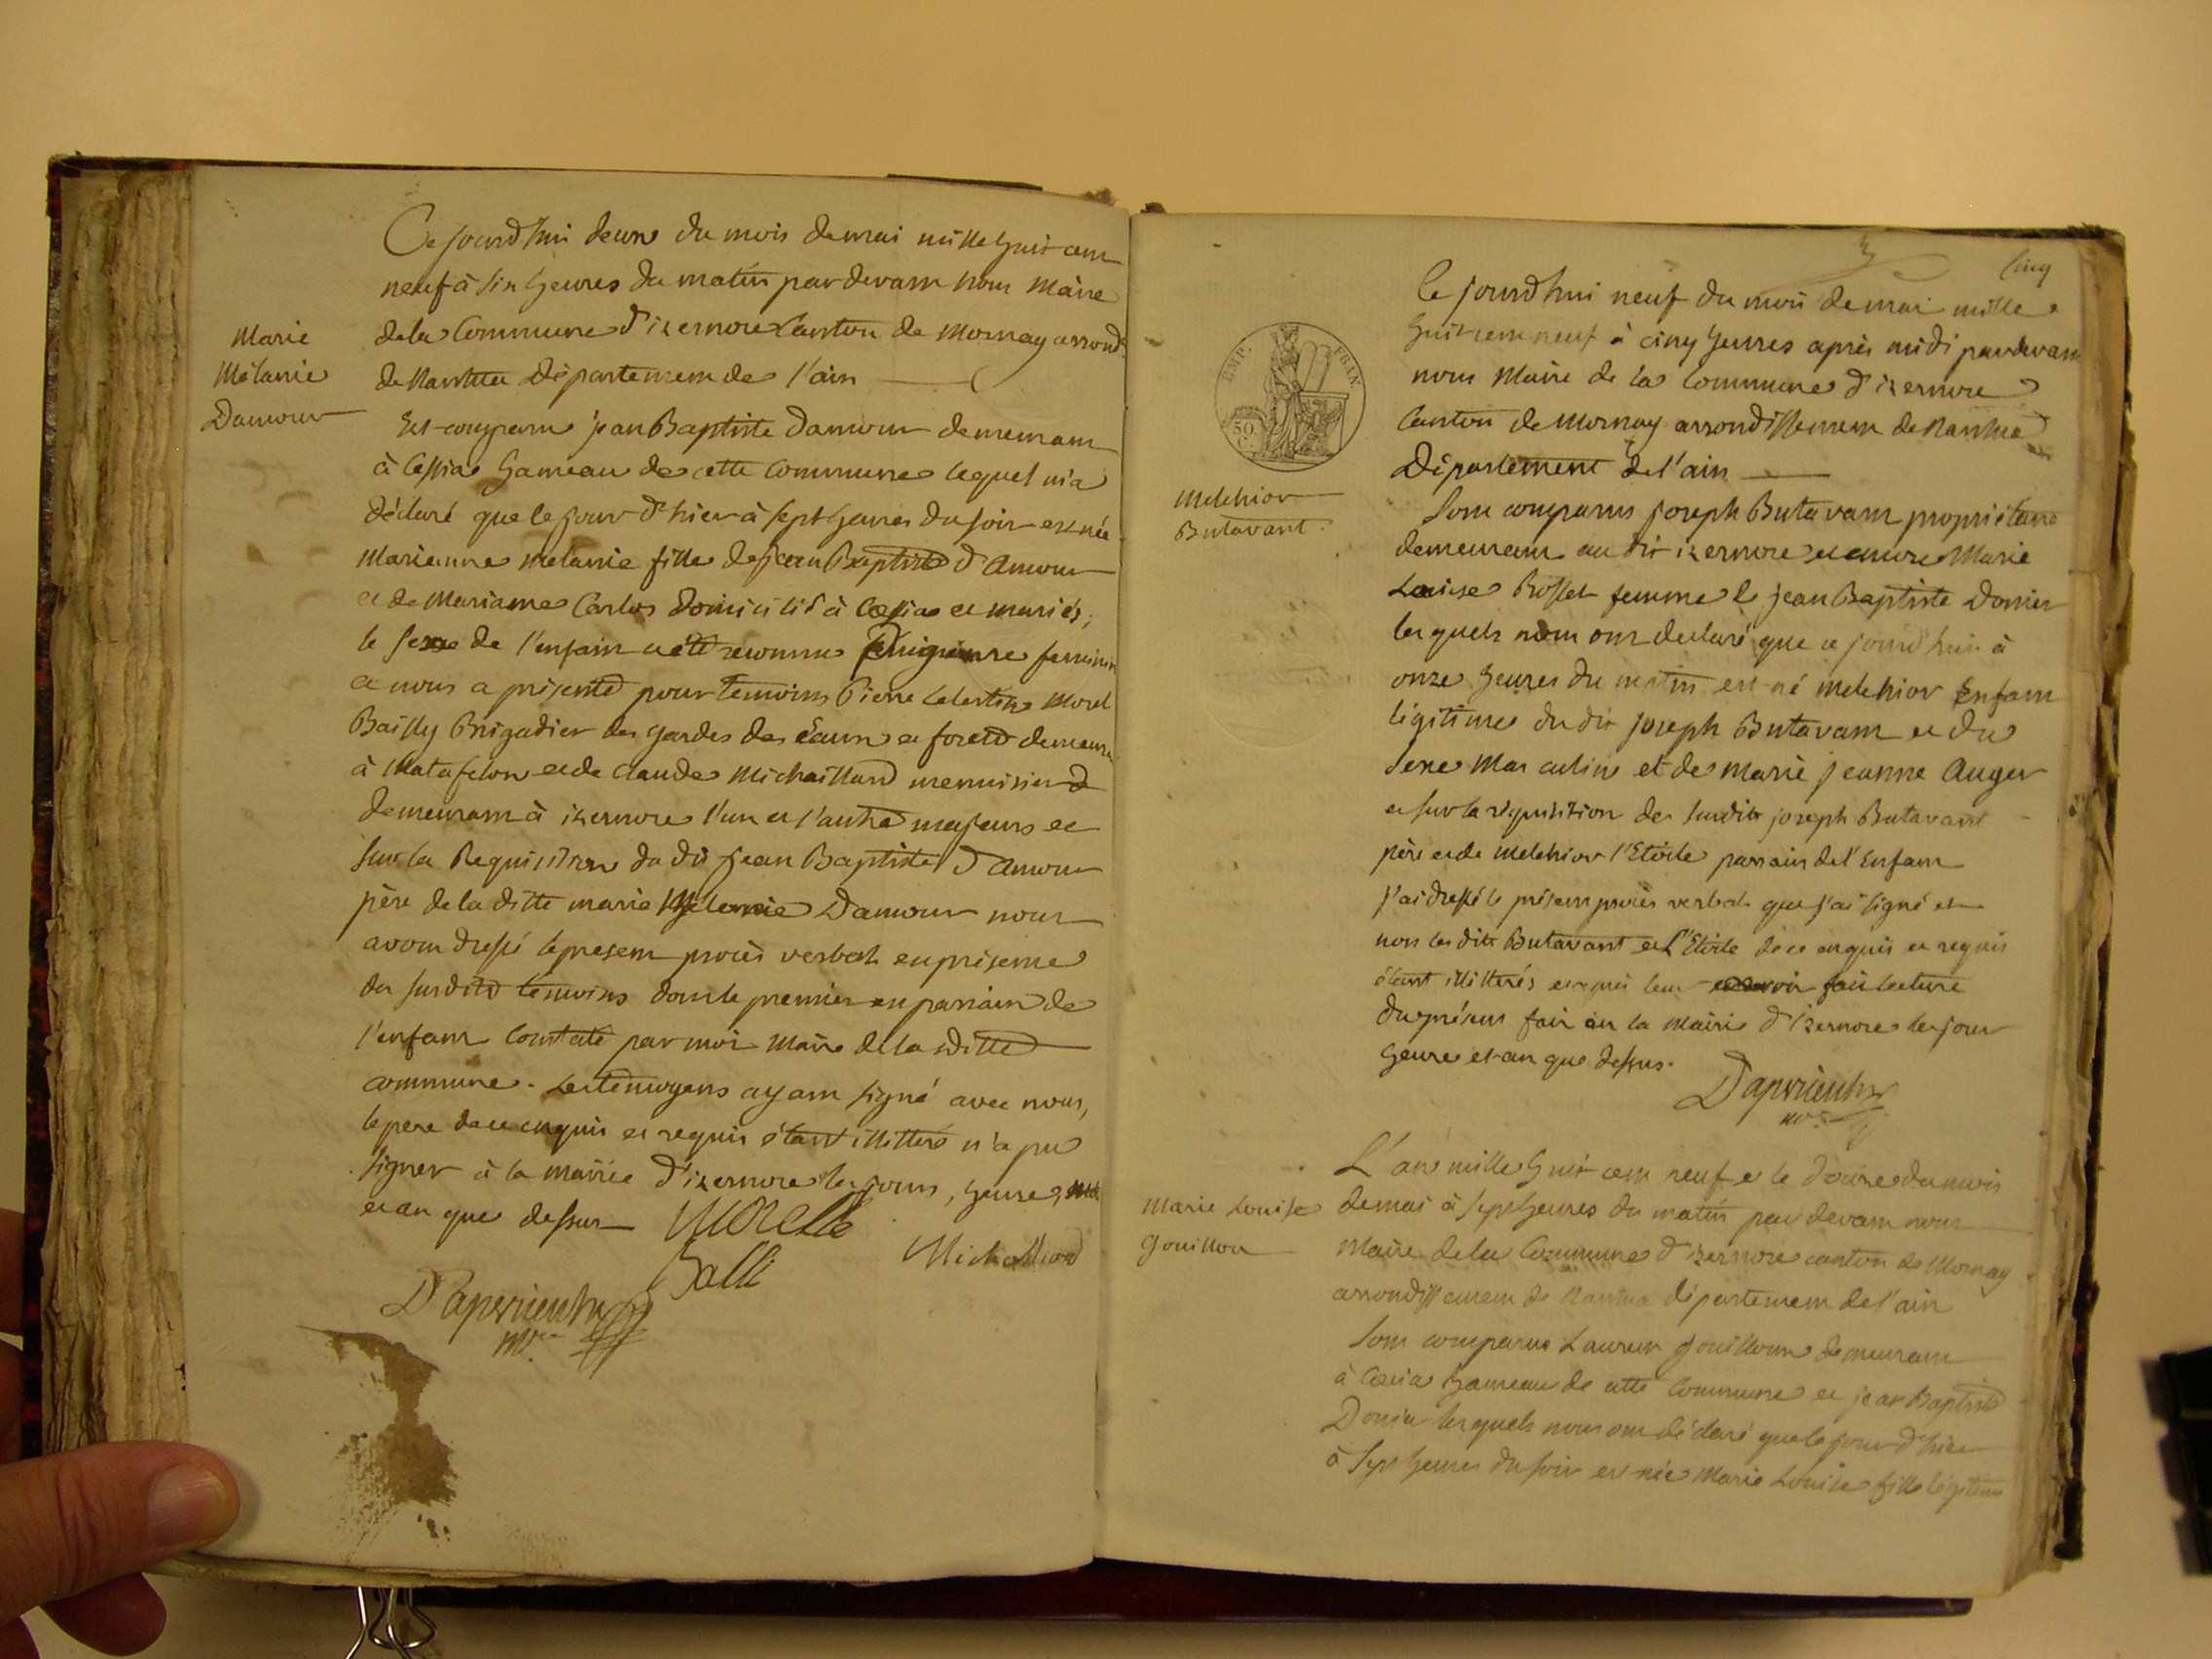 Marie
Mélanie
Damour
Ce jourd'hui deux du mois de mai mille huit cent
neuf à six heures du matin par devant nous Maire
de la Commune d'izernore Canton de Mornay arrond.
de Nantua Département de l'ain
Est comparu jean Baptiste Damour demeurant
à Cessia hameau de cette Commune lequel m'a
déclaré que le jour d'hier à sept heures du soir est née
Marianne melanie fille de jean Baptiste d'Amour
et de Marianne Carlos domicilié à Cessia et mariés,
le sexe de l'enfant a été reconnu feminin
et nous a présenté pour temoins Pierre Celestin Morel
Bailly Brigadier des gardes des Eaux et forets demeurt
à Matafelon et de claude Michaillard menuisier
demeurant à izernore l'un et l'autre majeurs et
sur la Requisition du dit jean Baptiste d'Amour
père de la ditte marie Melanie Damour nous
avons dressé le present procès verbal en présence
des susdits témoins dont le premier en parrain de
l'enfant Constaté par moi Maire de la ditte
commune. Les temoyens ayant signé avec nous,
le pere de ce enquis et requis étant illittéré n'a pu
signer à la mairie d'izernore les jour, heure,
et an que dessus Morelle
Balli
Michallard
Daperieuth
mre
cinq
EMP. FRAN.
50 C.
Melchior
Butavant.
Ce jourd'hui neuf du mois de mai mille
huit cent neuf à cinq heures après midi par devant
nous Maire de la Commune d'izernore
Canton de Mornay arrondissement de Nantua
Département de l'ain
Sont comparus joseph Butavant propriétaire
demeurant au dit izernore et encore Marie
Louise Rosset femme de jean Baptiste Donier
lesquels nous ont declaré que ce jourd'hui à
onze heures du matin est né melchior Enfant
légitime du dit joseph Butavant et du
sexe Masculin et de marie jeanne Auger
et sur la réquisition des susdits joseph Butavant
père et de Melchior l'Etoile parrain de l'Enfant
j'ai dressé le présent procès verbal que j'ai signé et
non les dits Butavant et L'Etoile de ce enquis et requis
étant illittérés et après leur avoir fait lecture
du présent fait en la Mairie d'izernore les jour
heure et an que dessus.
Daperieuth
mre
Marie Louise
Gouillon
L'an mille huit cent neuf et le douze du mois
de mai à sept heures du matin par devant nous
Maire de la Commune d'izernore canton de Mornay
arrondissement de Nantua département de l'ain
Sont comparus Laurent Gouilloux demeurant
à Cessia hameau de cette Commune et jean Baptiste
Donier lesquels nous ont déclaré que le jour d'hier
à sept heures du soir est née Marie Louise fille légitime